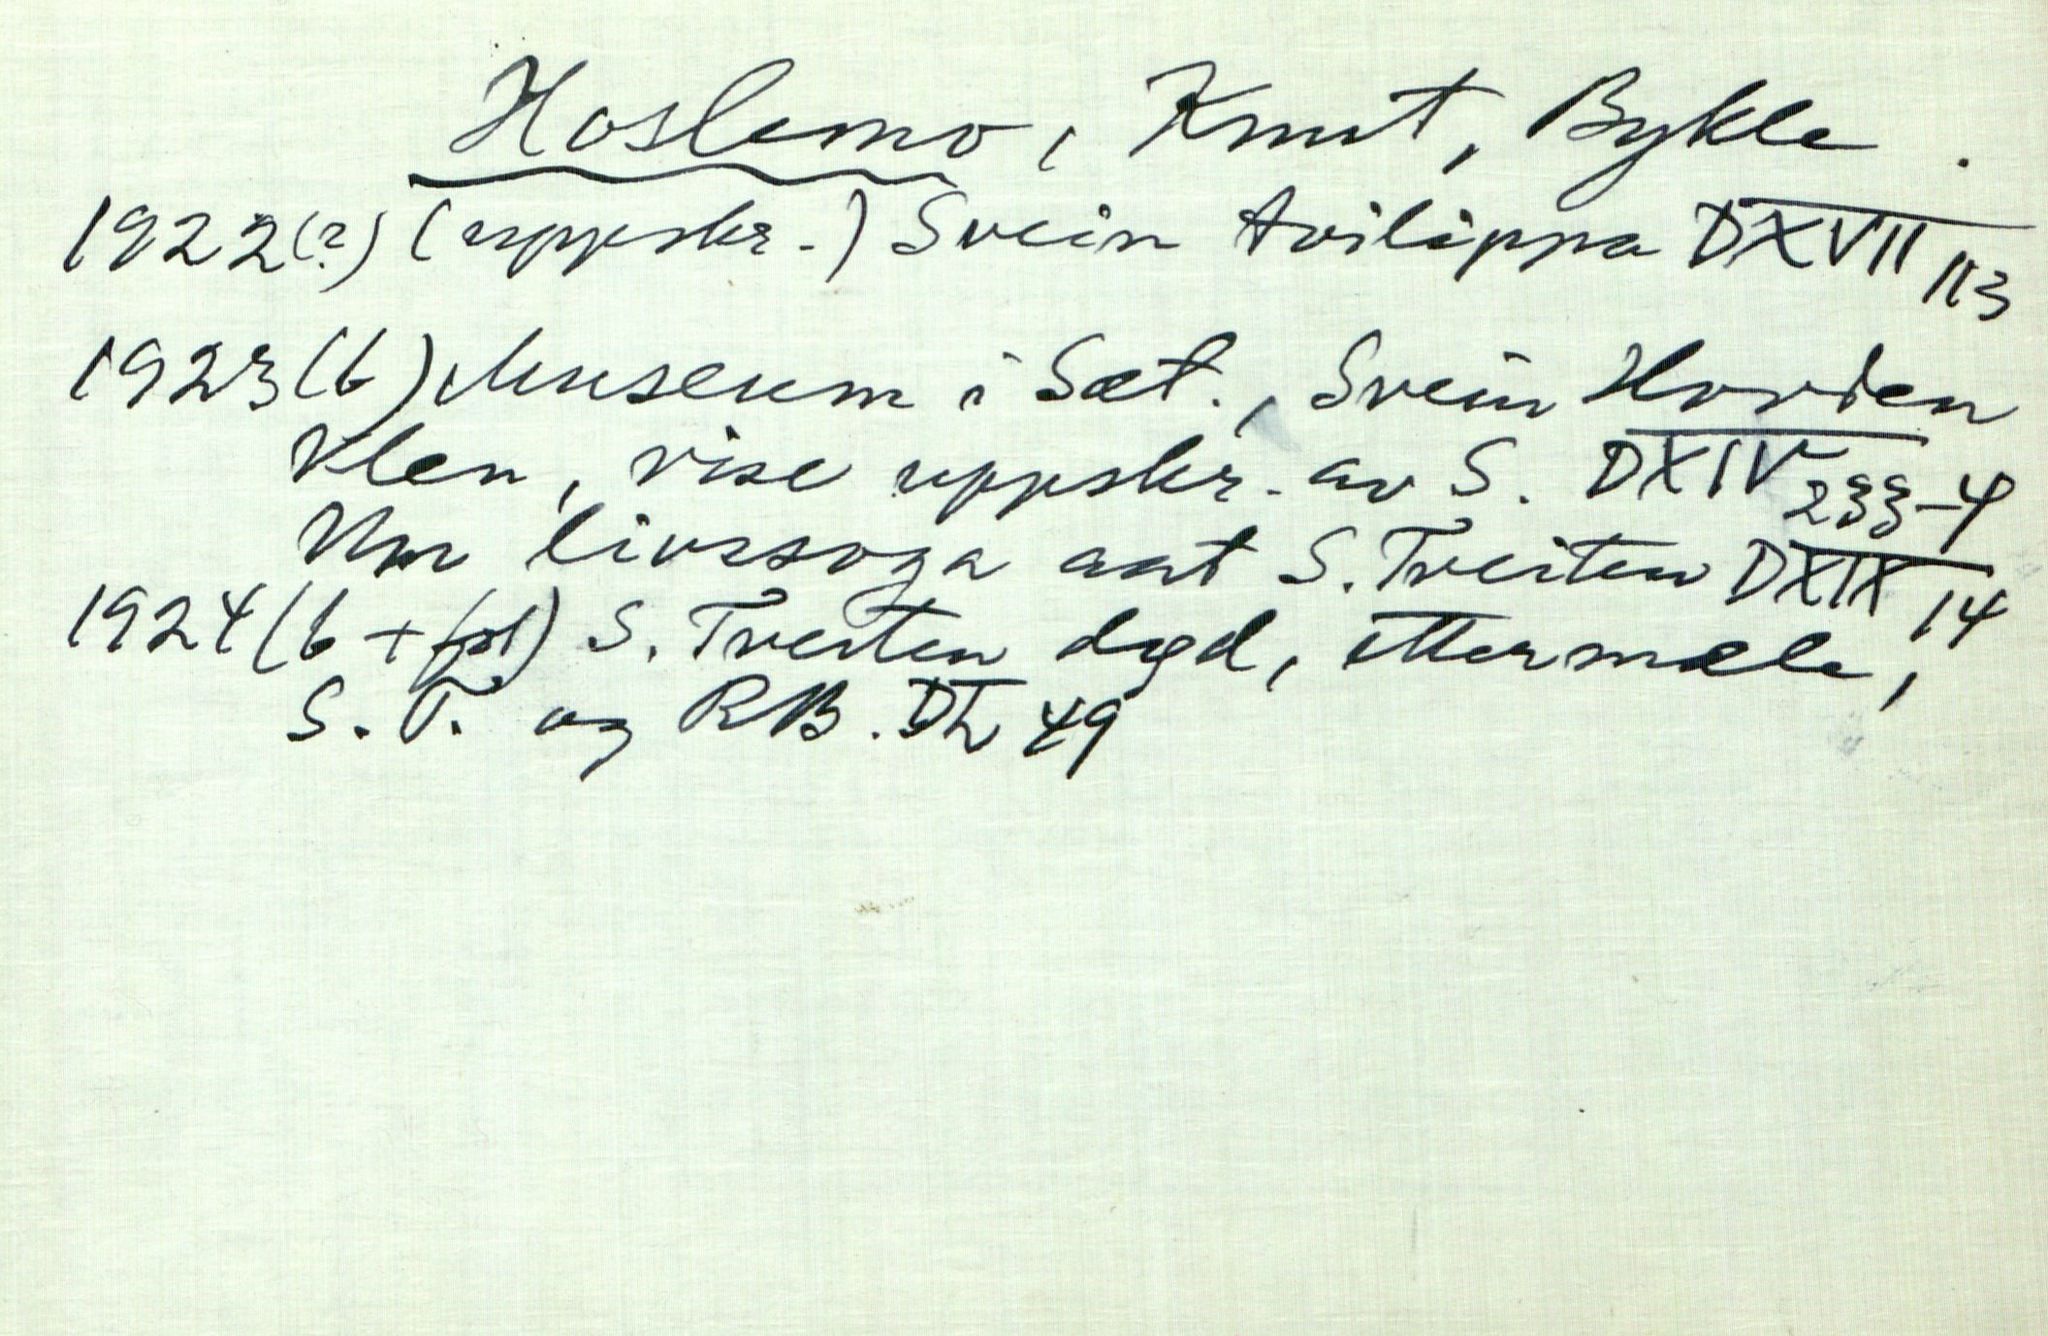 Hoslemo, Knut, Bykle.
1922(?) (uppskr.) Svein Avilippa DXVII 113
1923(b) Museum i Sæt., Svein Hovden
Vlen, vise uppskr. av S. DXIV 233-4
Um livssoga aat S. Tveiten DXIX 14
1924 (b + fpl) S. Tveiten død, ettermæle,
S. T. og RB. DL 49